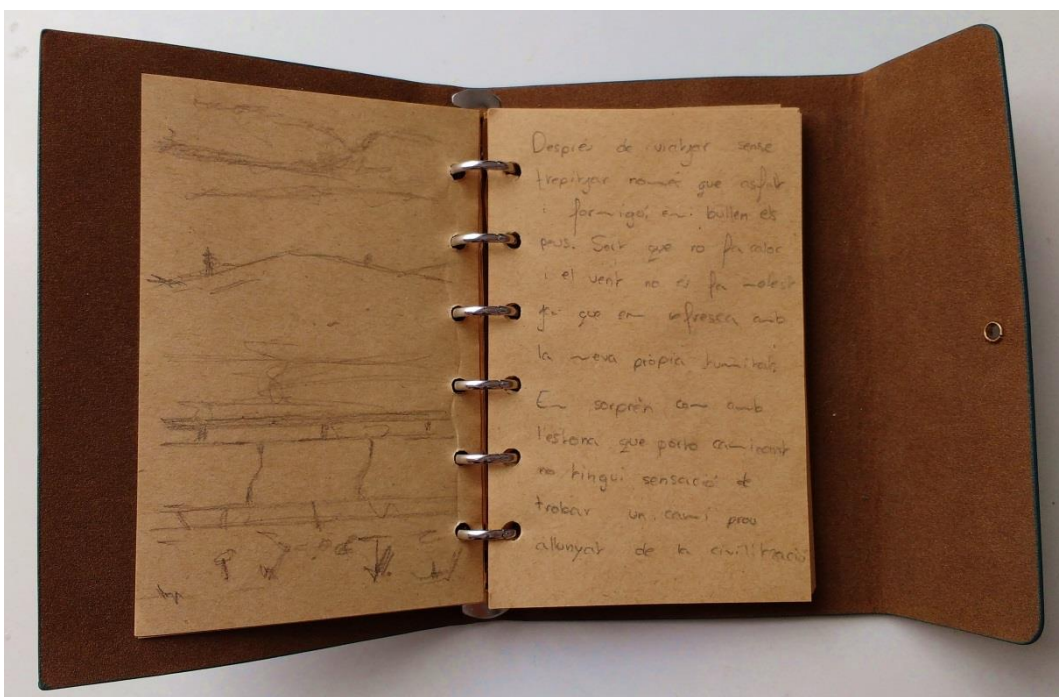 Després de viatjar sense
trepitjar només que asfalt
i formigó, em bullen els
peus. Sort que no fa calor
i el vent no es fa molest
ja que em refresca amb
la meva pròpia humitat.
Em sorprèn com amb
l'estona que porto caminant
no tingui sensació de
trobar un camí prou
allunyat de la civilització